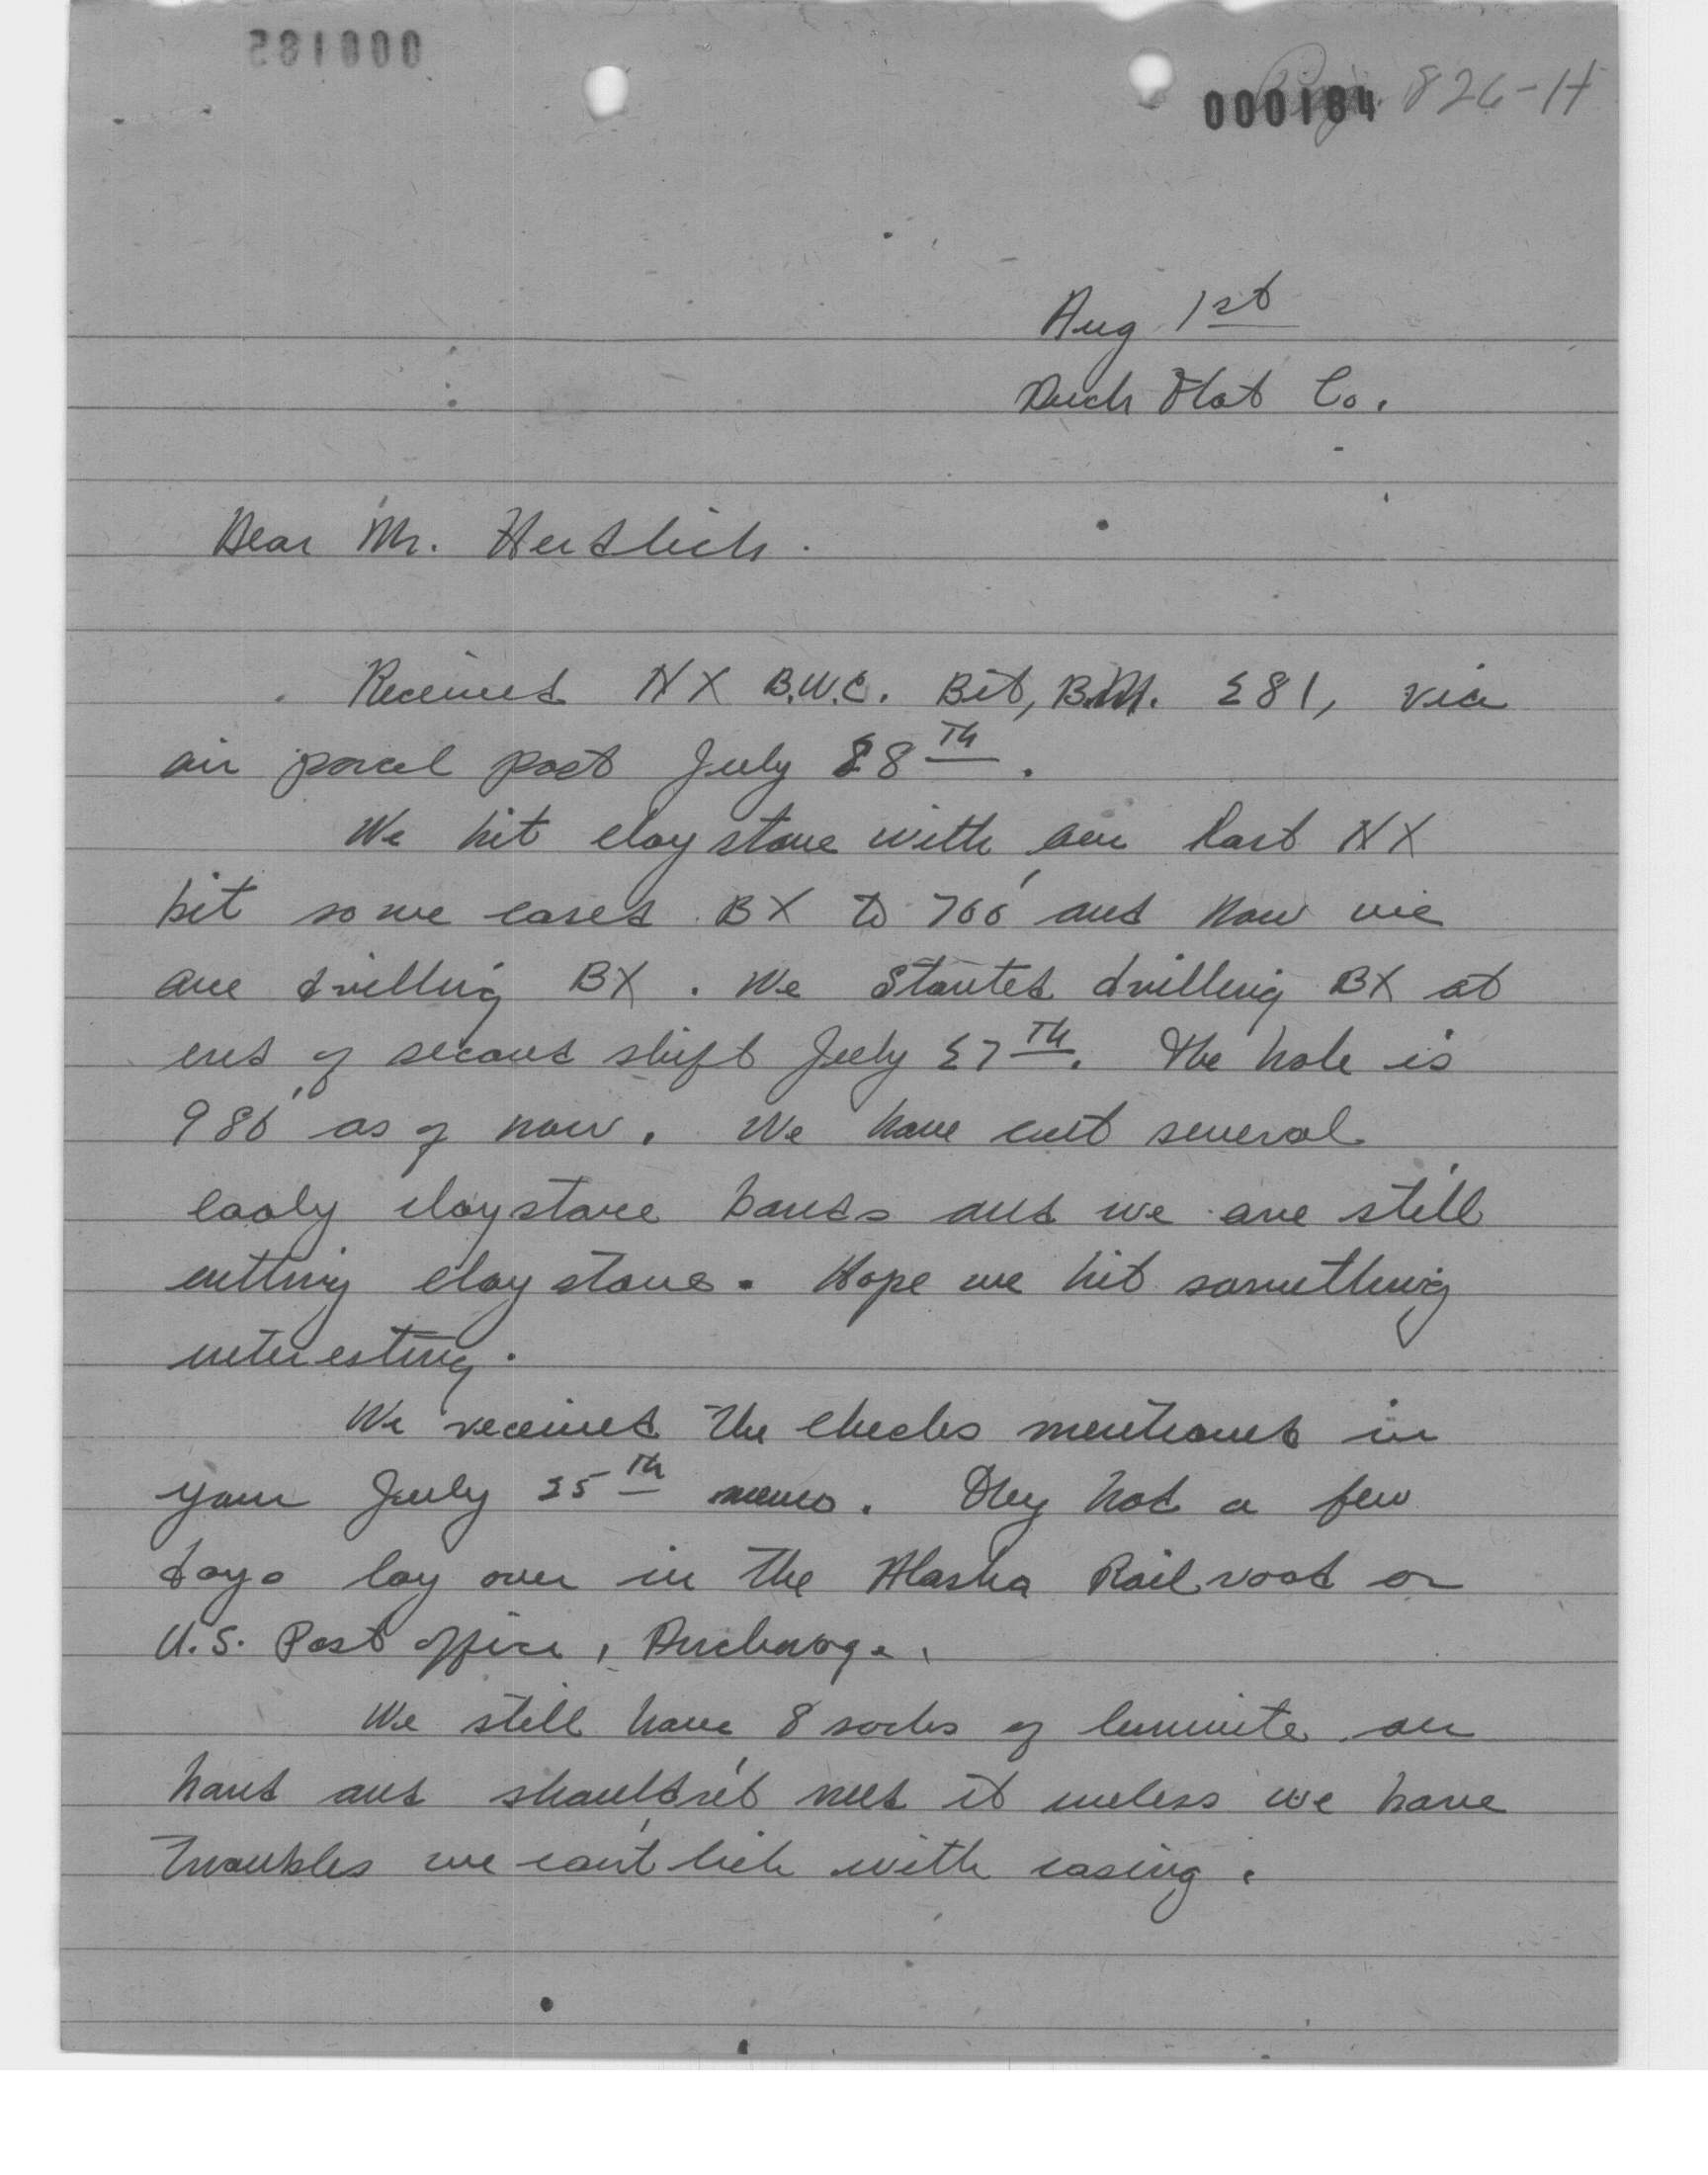 000182
000184 826-H
Aug 1st
Duck Flat Co.
Dear Mr. Herdlick.
Received NX B.W.C. Bit, B.M. 281, via
air parcel post July 28th.
We hit claystone with our last NX
bit so we cased BX to 700' and now we
are drilling BX. We started drilling BX at
end of second shift July 27th. The hole is
986' as of now. We have cut several
coaly claystone bands and we are still
cutting claystone. Hope we hit something
interesting.
We received the checks mentioned in
your July 25th memo. They had a few
days lay over in the Alaska Railroad or
U.S. Post office, Anchorage.
We still have 8 sacks of lumnite on
hand and shouldn't need it unless we have
troubles we can't lick with casing.